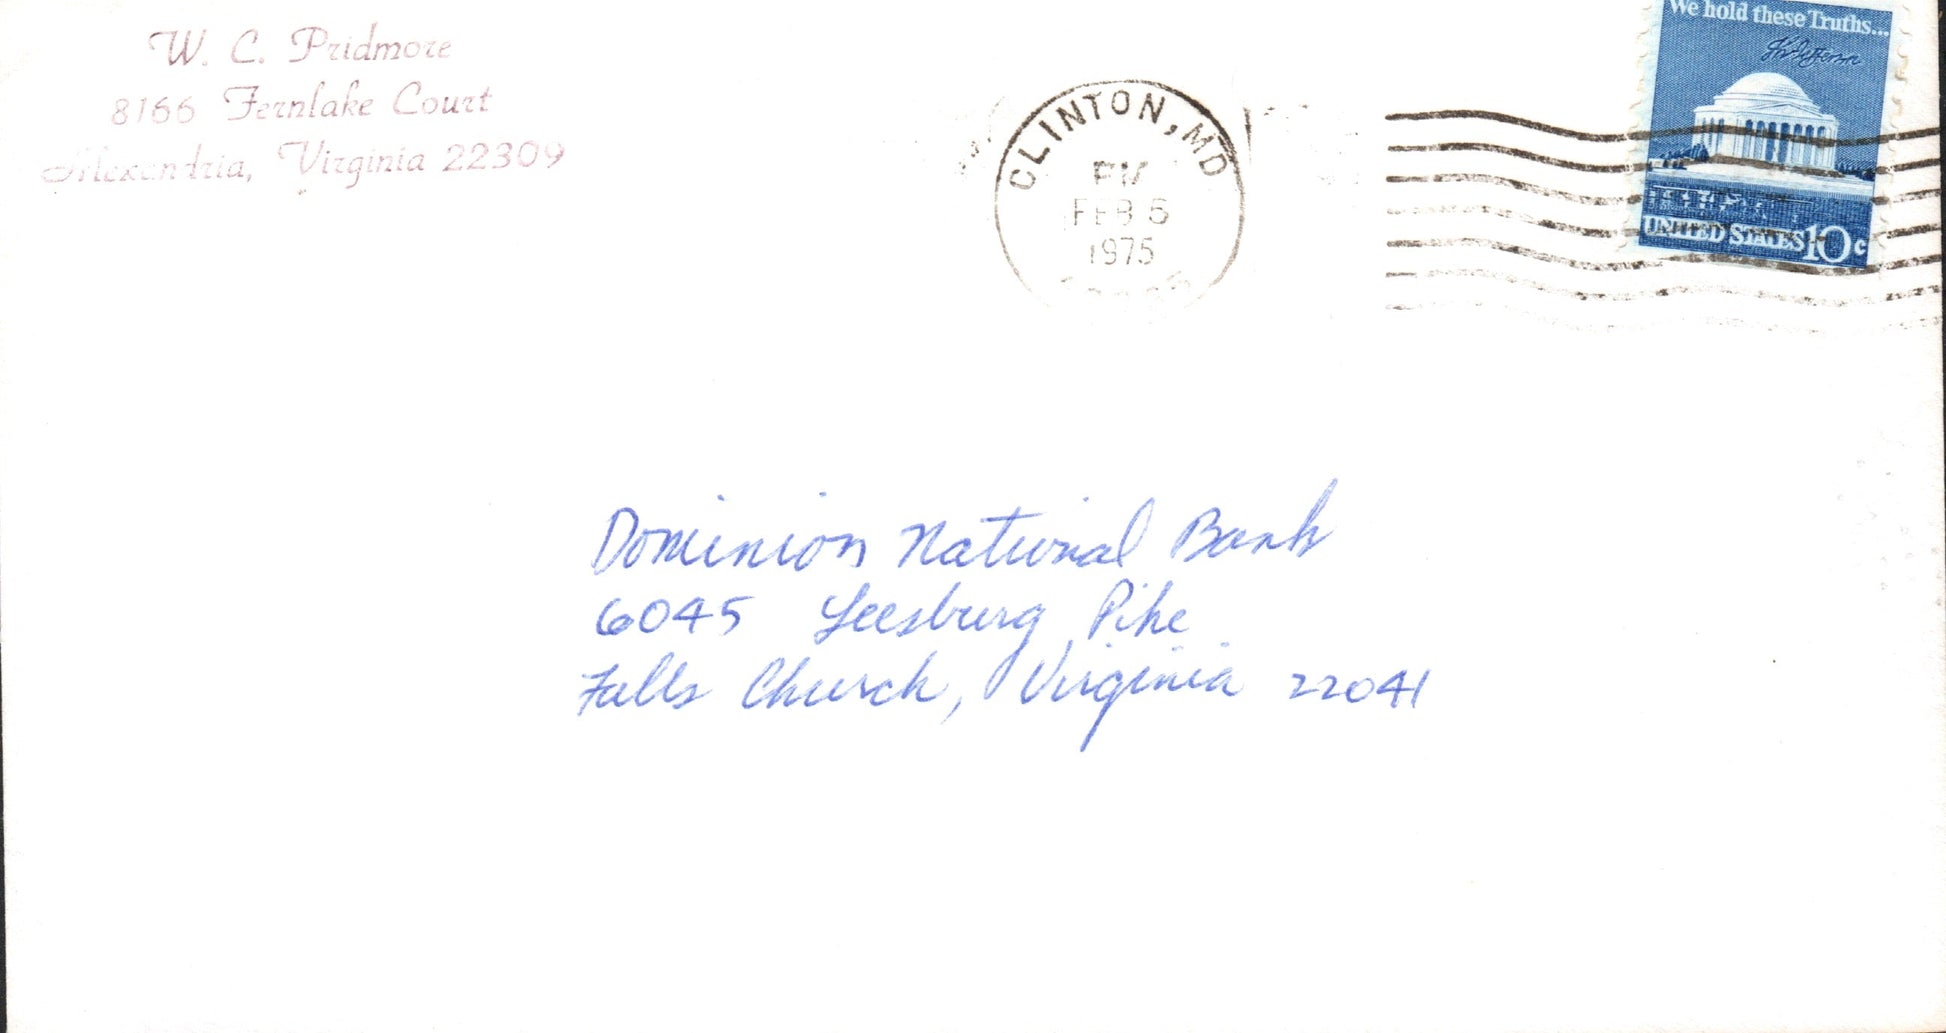 W. C. Pridmore
8166 Fernlake Court
Alexandria, Virginia 22309
CLINTON, MD
PM
FEB 5
1975
We hold these Truths...
Th Jefferson
UNITED STATES 10c
Dominion National Bank
6045 Leesburg Pike
Falls Church, Virginia 22041